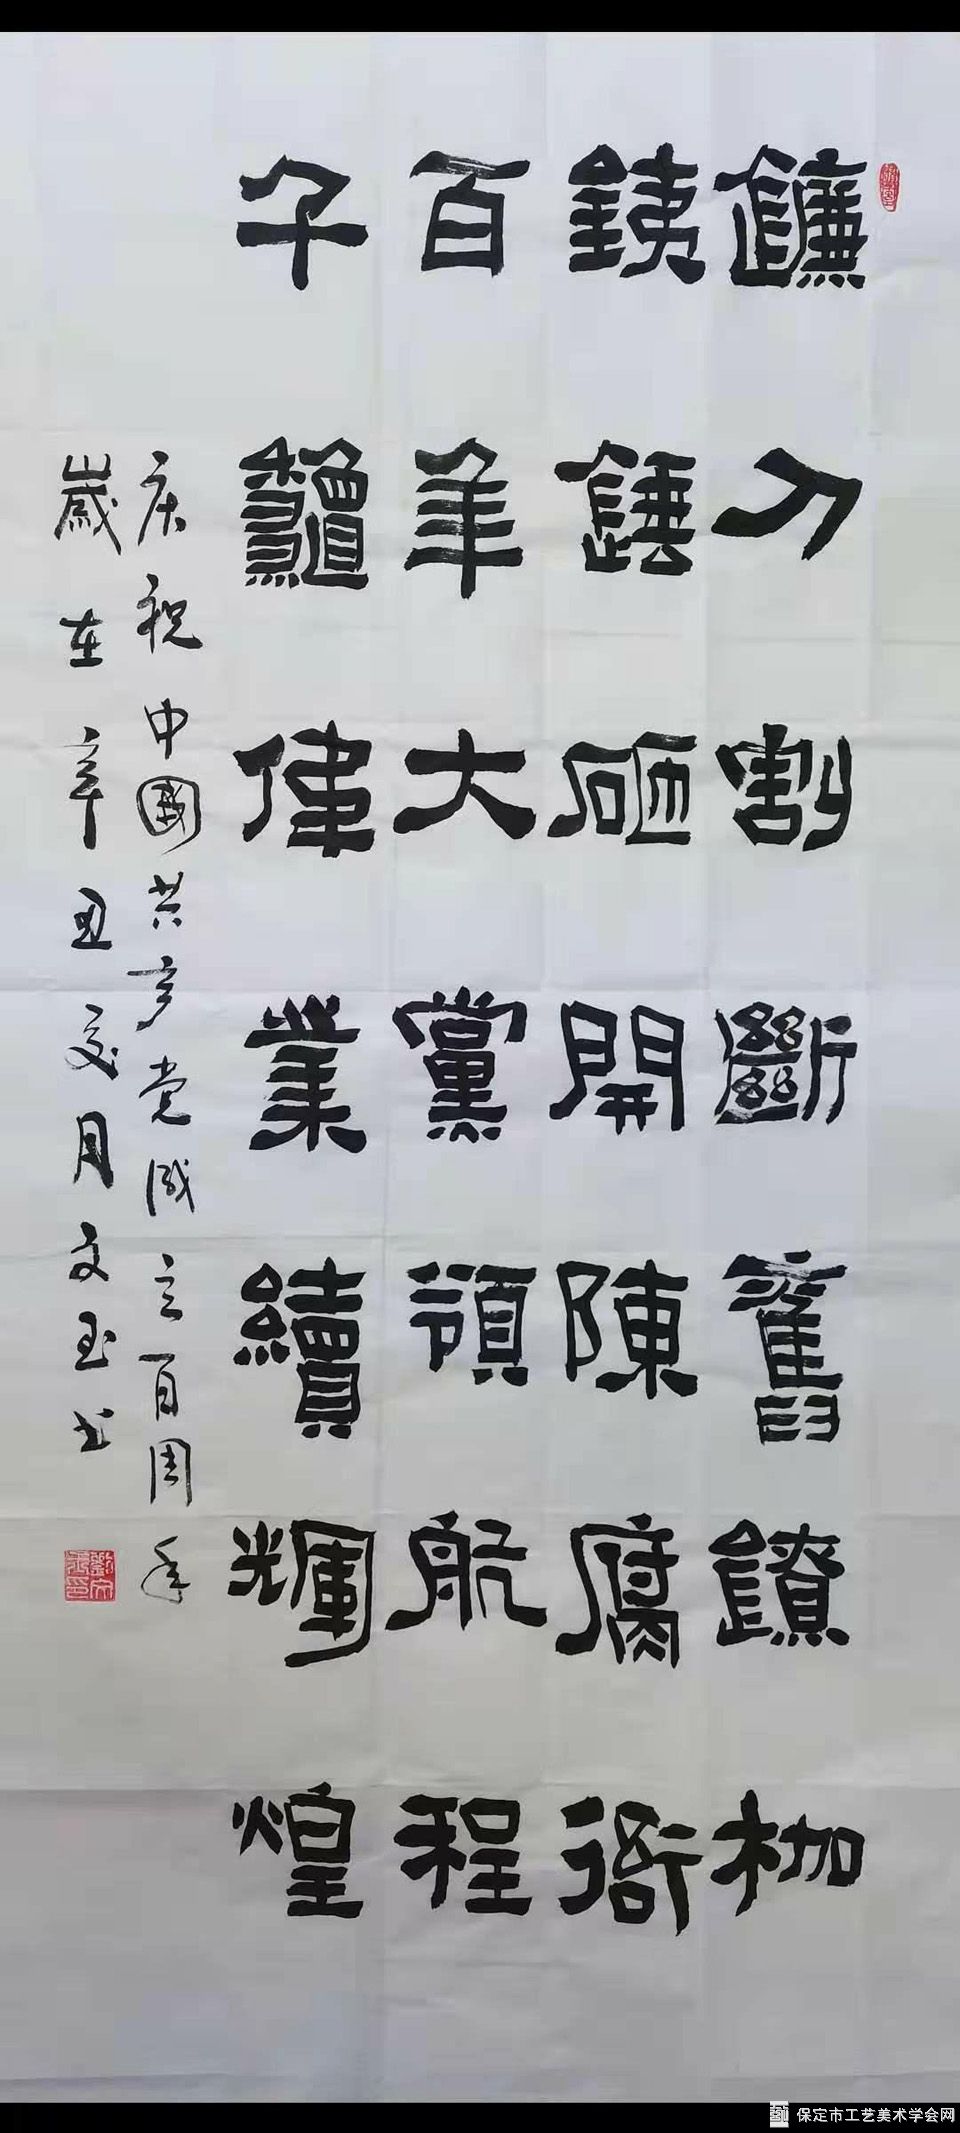 鐮刀割斷舊鐐枷
鐵錘砸開陳腐衙
百年大黨領航程
千龝偉業續輝煌
庆祝中國共产党成立百周年
歲在辛丑文玉书
保定市工艺美术学会网